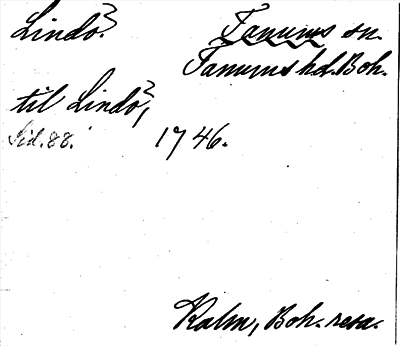 Lindö?
Tanums sn.
Tanums hd. Boh.
til Lindö,
Sid. 88. 1746.
Kalm, Boh. resa.